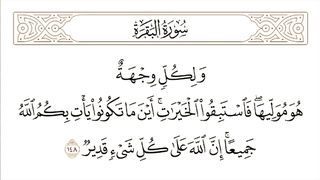 سُورَةُ البَقَرَةِ
وَلِكُلٍّ وِجْهَةٌ
هُوَ مُوَلِّيهَا ۖ فَاسْتَبِقُوا الْخَيْرَاتِ ۚ أَيْنَ مَا تَكُونُوا يَأْتِ بِكُمُ اللَّهُ
جَمِيعًا ۚ إِنَّ اللَّهَ عَلَىٰ كُلِّ شَيْءٍ قَدِيرٌ ١٤٨